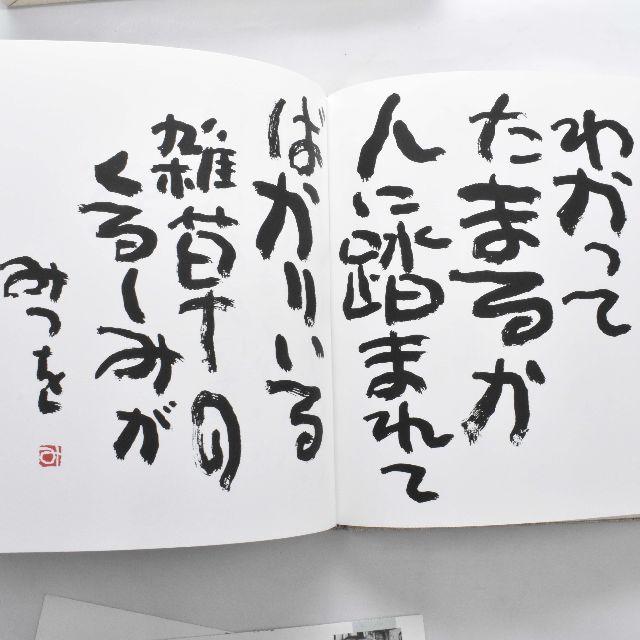 わかって
たまるか
人に踏まれて
ばかりいる
雑草の
くるしみが
みつを